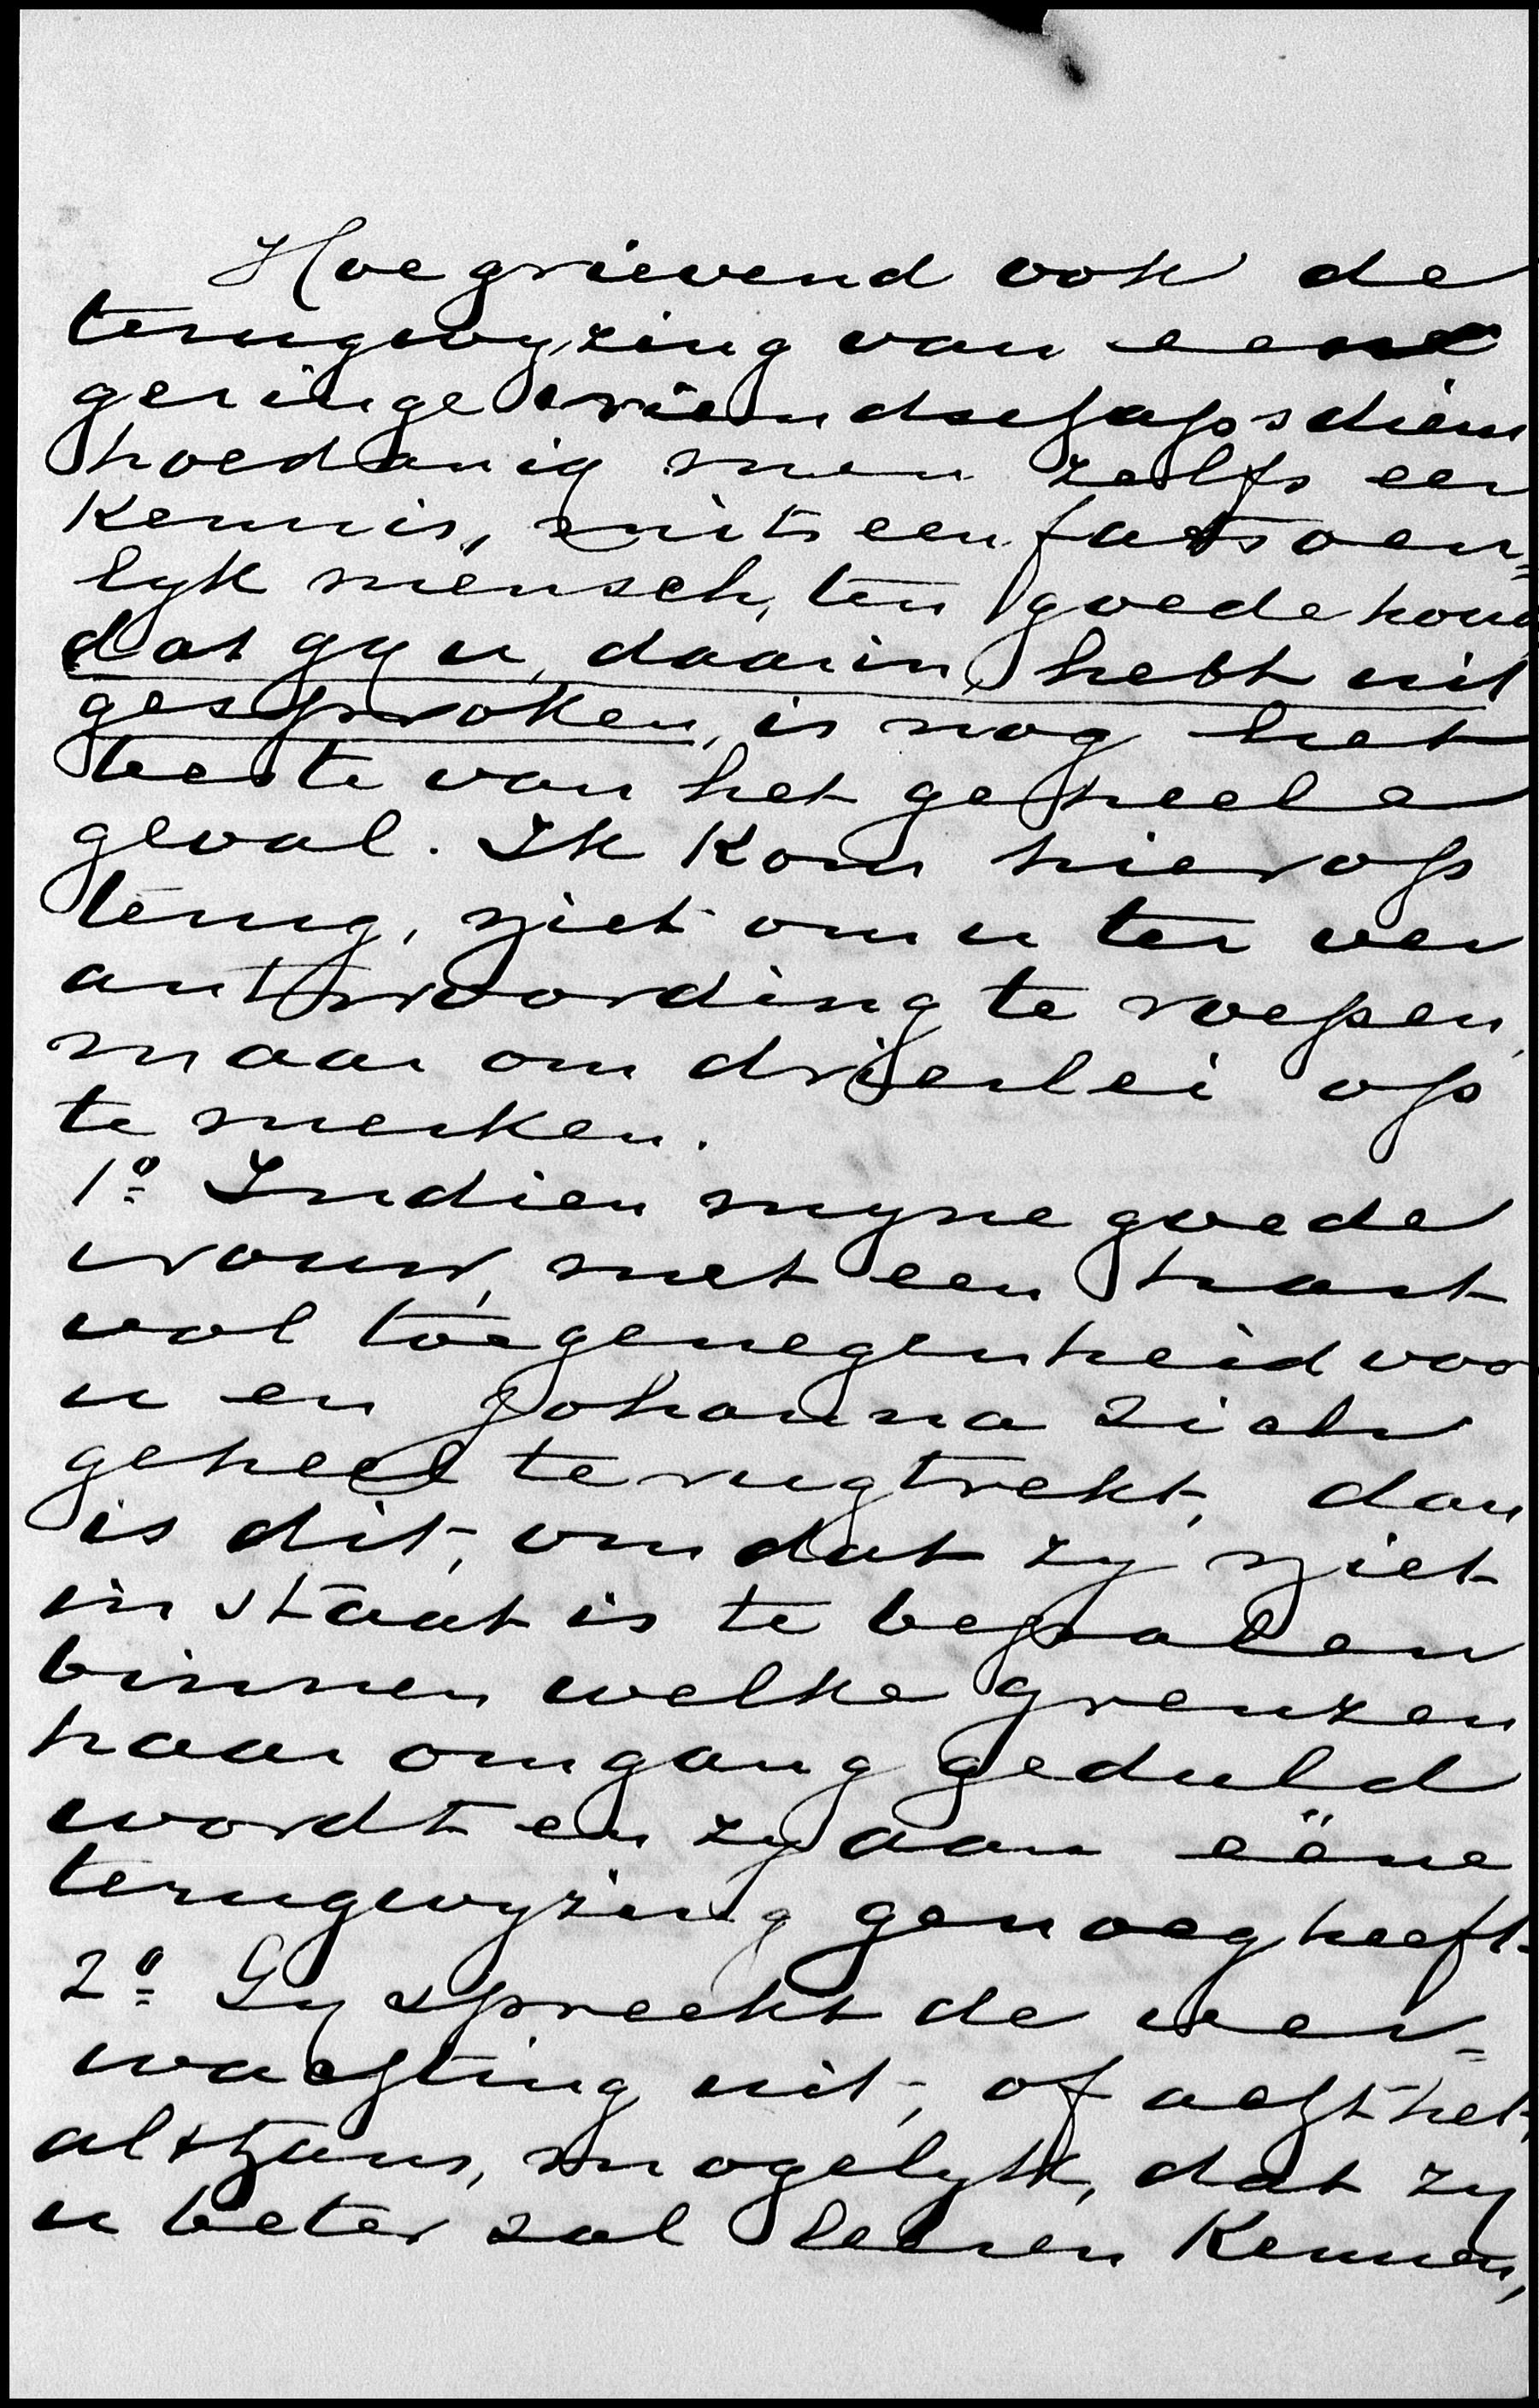 Hoe grievend ook de
terugwyzing van eene
geringe vriendschapsdien
hoedanig men zelfs een
kennis, mits een fatsoen=
lyk mensch, ten goede houd
dat gy u, daarin, hebt uit
gesproken, is nog het
beste van het geheele
geval. Ik kom hierop
terug, niet om u ter ver
antwoording te roepen,
maar om drieërlei op
te merken.
1º Indien myne goede
vrouw, met een hart
vol toegenegenheid voor
u en Johanna zich
geheel terugtrekt, dan
is dit, omdat zy niet
in staat is te bepalen
binnen welke grenzen
haar omgang geduld
wordt en zy aan ééne
terugwyzing genoeg heeft.
2º Gy spreekt de ver=
wachting uit, of acht het
althans, mogelyk, dat zy
u beter zal leeren kennen,